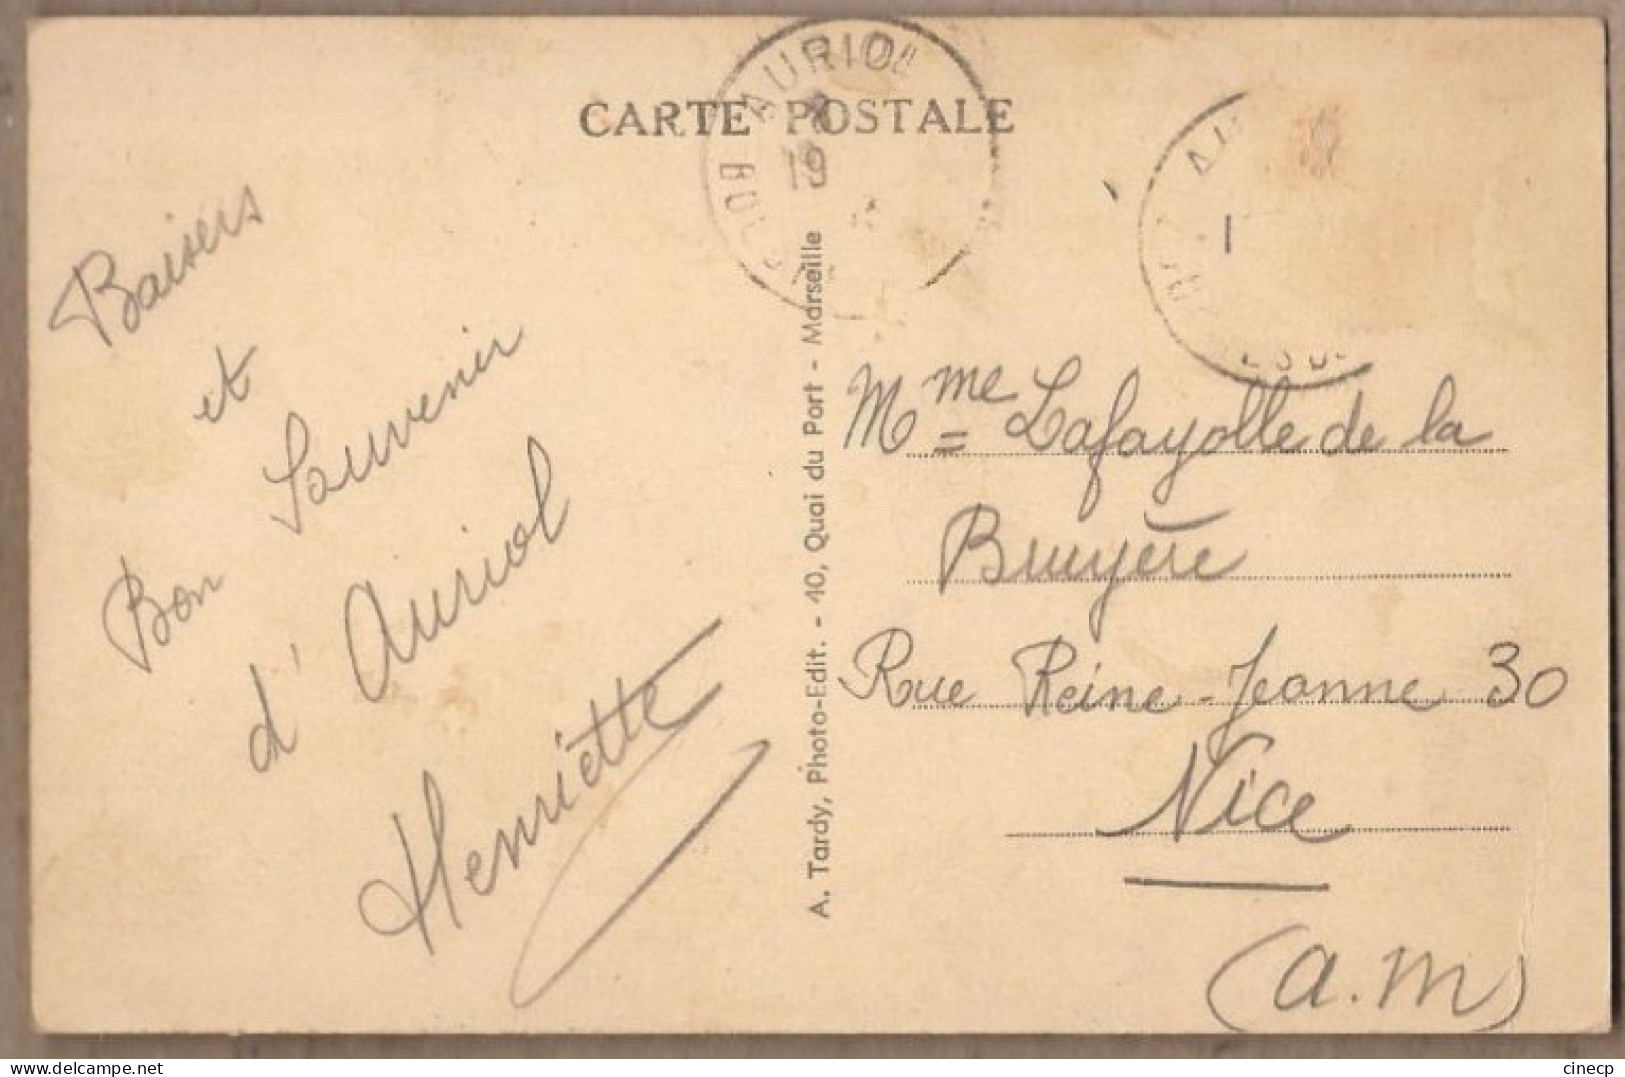 CARTE POSTALE
AURIOL
19
Baisers
et
Bon Souvenir
d'Auriol
Henriette
A. Tardy, Photo-Edit. - 10, Quai du Port - Marseille
Mme Lafayolle de la
Bruyère
Rue Reine-Jeanne 30
Nice
(a.m)
delcampe.net
cinecp